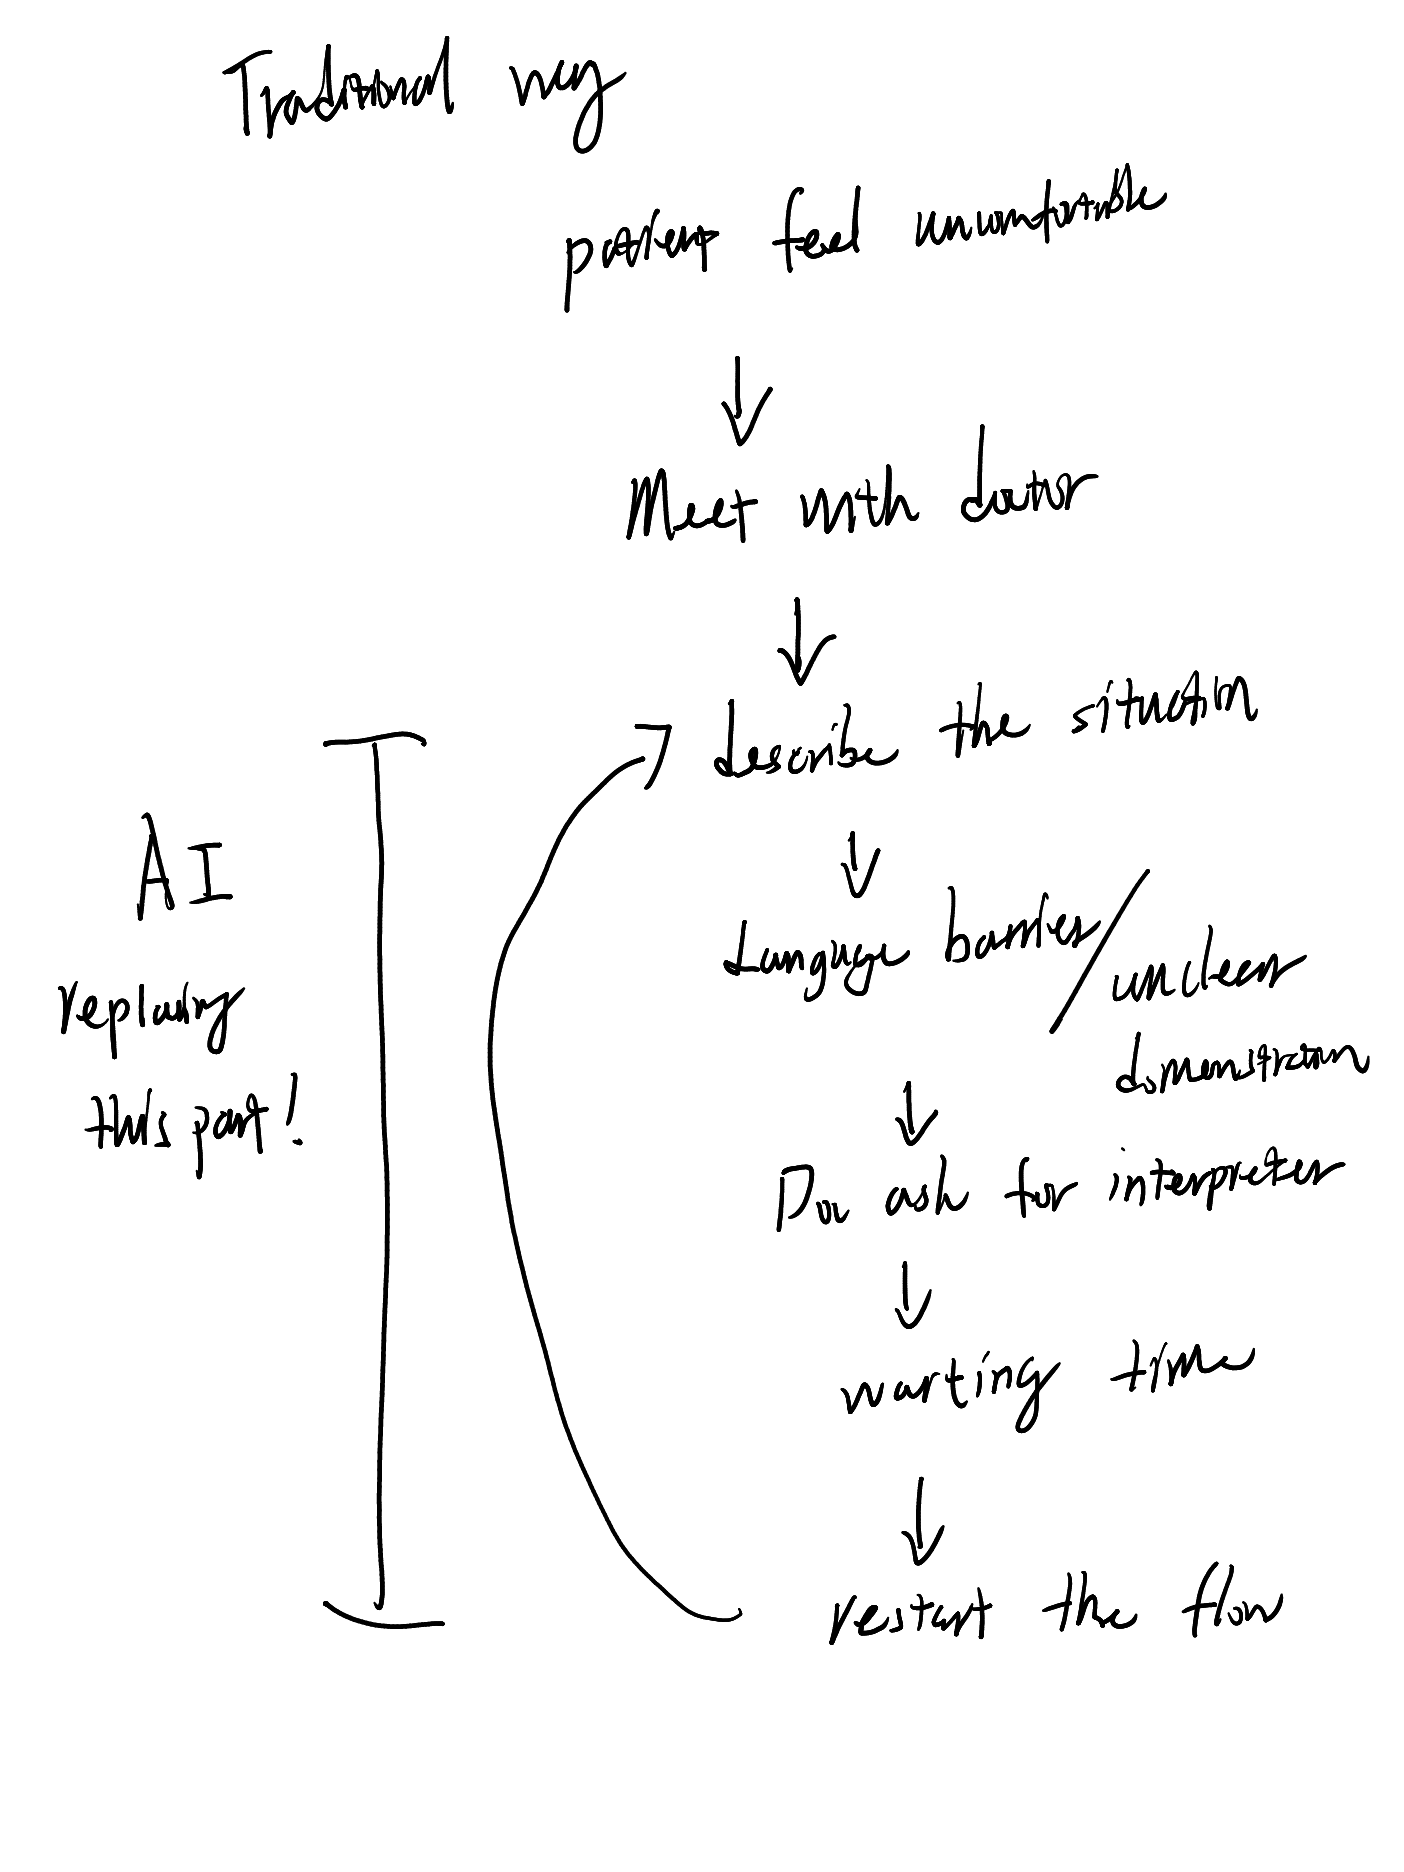 Traditional way
patient feel uncomfortable
Meet with doctor
describe the situation
Language barries/unclear
domenstration
Doc ask for interpreter
waiting time
restart the flow
AI
replacing
this part!